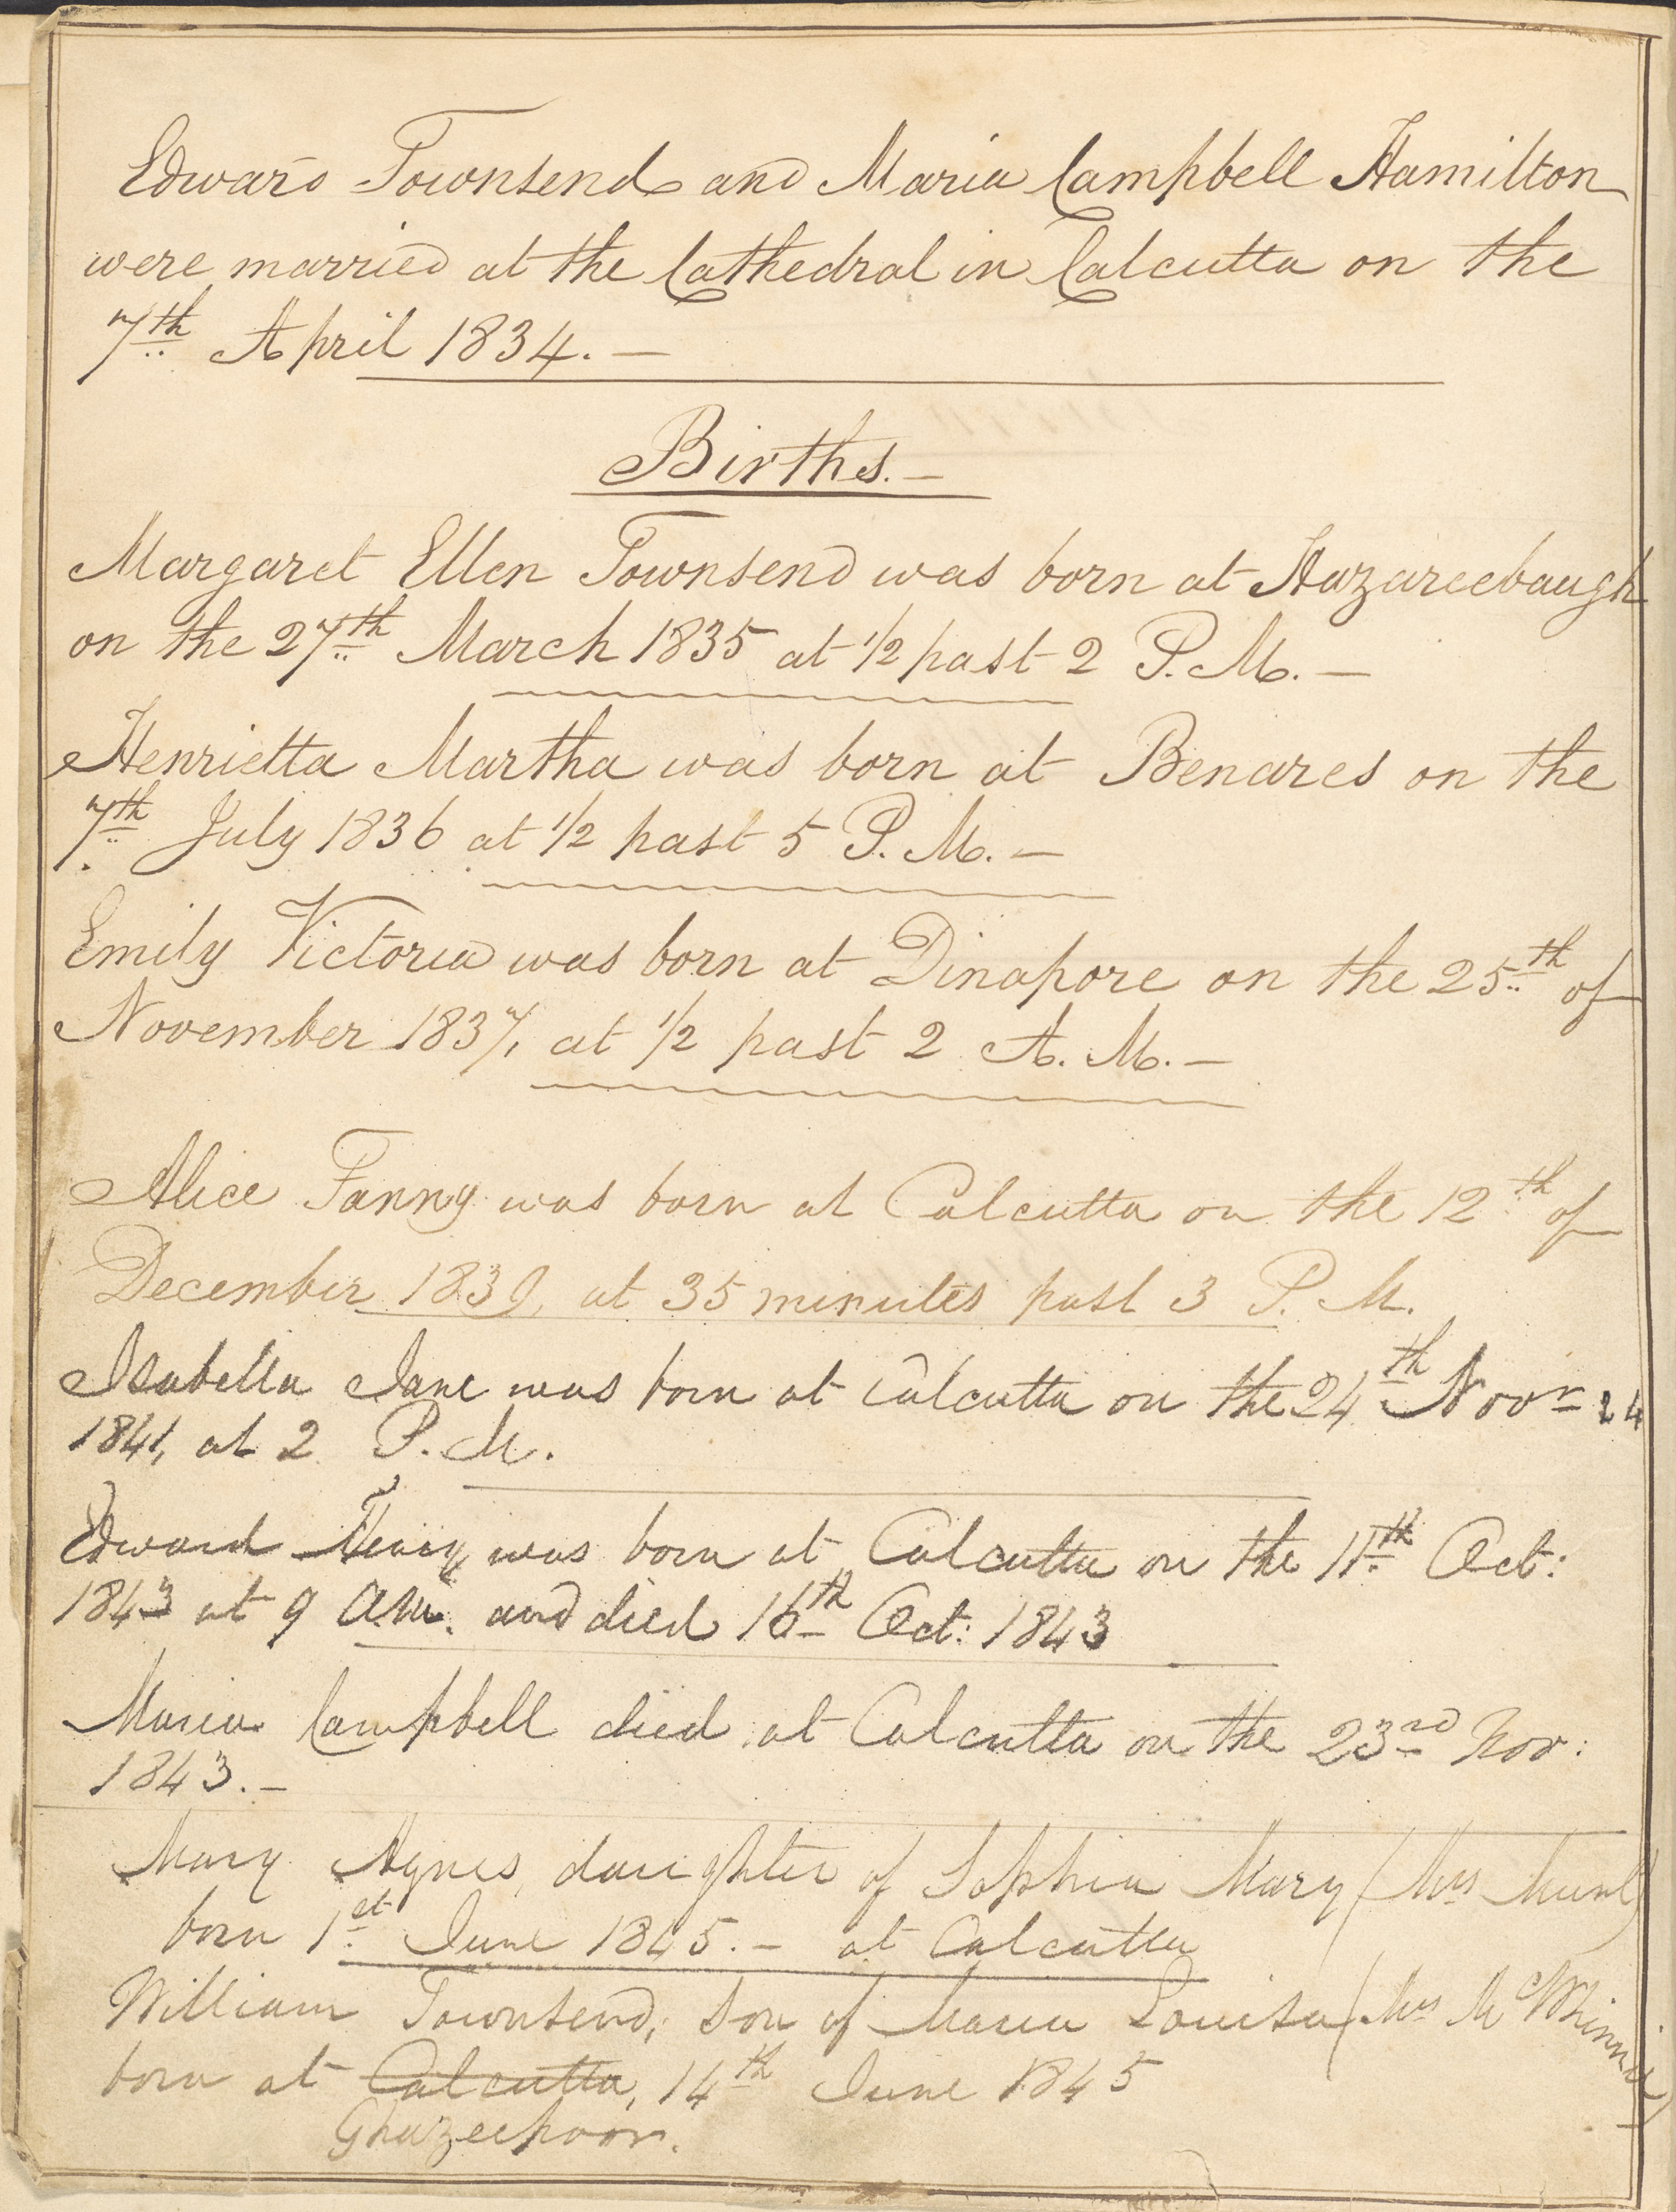 Edward Townsend and Maria Campbell Hamilton
were married at the Cathedral in Calcutta on the
7th April 1834. —
Births. —
Margaret Ellen Townsend was born at Hazareebaugh
on the 27th March 1835 at 1/2 past 2 P.M. —
Henrietta Martha was born at Benares on the
7th July 1836 at 1/2 past 5 P.M. —
Emily Victoria was born at Dinapore on the 25th of
November 1837, at 1/2 past 2 A.M. —
Alice Fanny was born at Calcutta on the 12th of
December 1839, at 35 minutes past 3 P.M.
Isabella Jane was born at Calcutta on the 24th Novr 24
1841, at 2 P.M.
Edward Henry was born at Calcutta on the 11th Oct:
1843 at 9 a.m. and died 16th Oct: 1843
Maria Campbell died at Calcutta on the 23rd Nov:
1843. —
Mary Agnes, daughter of Sophia Mary (Mrs
born 1st June 1845. — at Calcutta
William Townsend, son of Maria Louisa (Mrs McWhinnie)
born at Calcutta, 14th June 1845
Ghazeepoor.